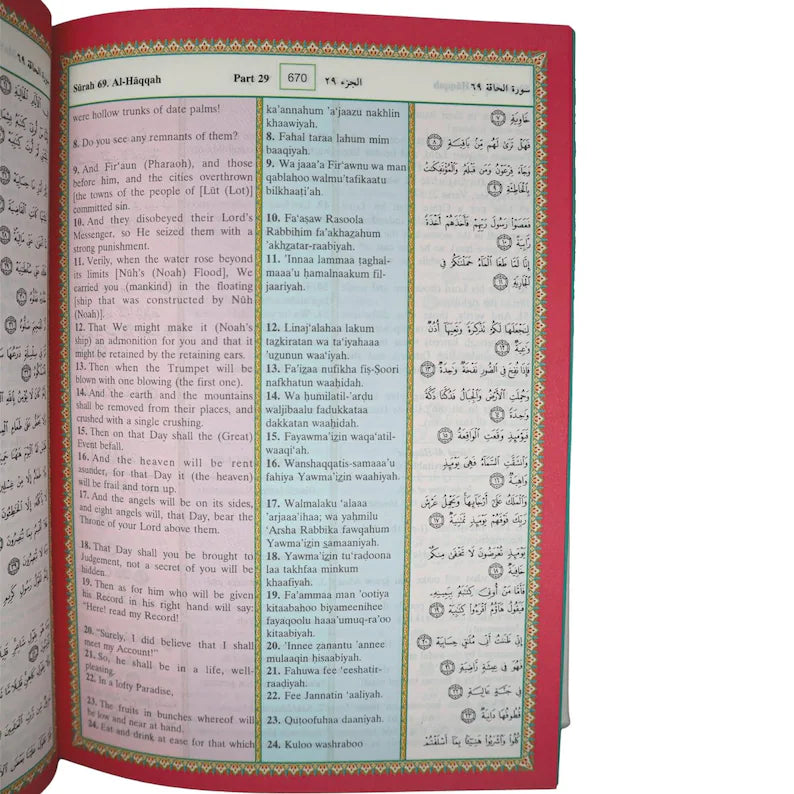 Sûrah 69. Al-Hâqqah Part 29 670 الجزء ٢٩ سورة الحاقة ٦٩
were hollow trunks of date palms!
8. Do you see any remnants of them?
9. And Fir'aun (Pharaoh), and those
before him, and the cities overthrown
[the towns of the people of [Lût (Lot)]
committed sin.
10. And they disobeyed their Lord's
Messenger, so He seized them with a
strong punishment.
11. Verily, when the water rose beyond
its limits [Nûh's (Noah) Flood], We
carried you (mankind) in the floating
[ship that was constructed by Nûh
(Noah)].
12. That We might make it (Noah's
ship) an admonition for you and that it
might be retained by the retaining ears.
13. Then when the Trumpet will be
blown with one blowing (the first one).
14. And the earth and the mountains
shall be removed from their places, and
crushed with a single crushing.
15. Then on that Day shall the (Great)
Event befall.
16. And the heaven will be rent
asunder, for that Day it (the heaven)
will be frail and torn up.
17. And the angels will be on its sides,
and eight angels will, that Day, bear the
Throne of your Lord above them.
18. That Day shall you be brought to
Judgement, not a secret of you will be
hidden.
19. Then as for him who will be given
his Record in his right hand will say:
"Here! read my Record!
20. "Surely, I did believe that I shall
meet my Account!"
21. So, he shall be in a life, well-
pleasing.
22. In a lofty Paradise,
23. The fruits in bunches whereof will
be low and near at hand.
24. Eat and drink at ease for that which
ka'annahum 'a'jaazu nakhlin
khaawiyah.
8. Fahal taraa lahum mim
baaqiyah.
9. Wa jaaa'a Fir'awnu wa man
qablahoo walmu'tafikaatu
bilkhaaṭi'ah.
10. Fa'aṣaw Rasoola
Rabbihim fa'akhazahum
'akhzatar-raabiyah.
11. 'Innaa lammaa ṭaghal-
maaa'u ḥamalnaakum fil-
jaariyah.
12. Linaj'alahaa lakum
tazkiratan wa ta'iyahaaa
'uzunun waa'iyah.
13. Fa'izaa nufikha fiṣ-Ṣoori
nafkhatun waaḥidah.
14. Wa ḥumilatil-'arḍu
waljibaalu fadukkataa
dakkatan waaḥidah.
15. Fayawma'izin waqa'atil-
waaqi'ah.
16. Wanshaqqatis-samaaa'u
fahiya Yawma'izin waahiyah.
17. Walmalaku 'alaaa
'arjaaa'ihaa; wa yaḥmilu
'Arsha Rabbika fawqahum
Yawma'izin samaaniyah.
18. Yawma'izin tu'raḍoona
laa takhfaa minkum
khaafiyah.
19. Fa'ammaa man 'ootiya
kitaabahoo biyameenihee
fayaqoolu haaa'umuq-ra'oo
kitaabiyah.
20. 'Innee zanantu 'annee
mulaaqin ḥisaabiyah.
21. Fahuwa fee 'eeshatir-
raaḍiyah.
22. Fee Jannatin 'aaliyah.
23. Quṭoofuhaa daaniyah.
24. Kuloo washraboo
خَاوِيَةٍ ٧
فَهَلْ تَرَىٰ لَهُم مِّنۢ بَاقِيَةٍ ٨
وَجَآءَ فِرْعَوْنُ وَمَن قَبْلَهُۥ وَٱلْمُؤْتَفِكَٰتُ
بِٱلْخَاطِئَةِ ٩
فَعَصَوْا۟ رَسُولَ رَبِّهِمْ فَأَخَذَهُمْ أَخْذَةً
رَّابِيَةً ١٠
إِنَّا لَمَّا طَغَا ٱلْمَآءُ حَمَلْنَٰكُمْ فِى
ٱلْجَارِيَةِ ١١
لِنَجْعَلَهَا لَكُمْ تَذْكِرَةً وَتَعِيَهَآ أُذُنٌ
وَٰعِيَةٌ ١٢
فَإِذَا نُفِخَ فِى ٱلصُّورِ نَفْخَةٌ وَٰحِدَةٌ ١٣
وَحُمِلَتِ ٱلْأَرْضُ وَٱلْجِبَالُ فَدُكَّتَا دَكَّةً
وَٰحِدَةً ١٤
فَيَوْمَئِذٍ وَقَعَتِ ٱلْوَاقِعَةُ ١٥
وَٱنشَقَّتِ ٱلسَّمَآءُ فَهِىَ يَوْمَئِذٍ
وَاهِيَةٌ ١٦
وَٱلْمَلَكُ عَلَىٰٓ أَرْجَآئِهَا وَيَحْمِلُ عَرْشَ
رَبِّكَ فَوْقَهُمْ يَوْمَئِذٍ ثَمَٰنِيَةٌ ١٧
يَوْمَئِذٍ تُعْرَضُونَ لَا تَخْفَىٰ مِنكُمْ
خَافِيَةٌ ١٨
فَأَمَّا مَنْ أُوتِىَ كِتَٰبَهُۥ بِيَمِينِهِۦ
فَيَقُولُ هَآؤُمُ ٱقْرَءُوا۟ كِتَٰبِيَهْ ١٩
إِنِّى ظَنَنتُ أَنِّى مُلَٰقٍ حِسَابِيَهْ ٢٠
فَهُوَ فِى عِيشَةٍ رَّاضِيَةٍ ٢١
فِى جَنَّةٍ عَالِيَةٍ ٢٢
قُطُوفُهَا دَانِيَةٌ ٢٣
كُلُوا۟ وَٱشْرَبُوا۟ هَنِيٓـًٔۢا بِمَآ أَسْلَفْتُمْ